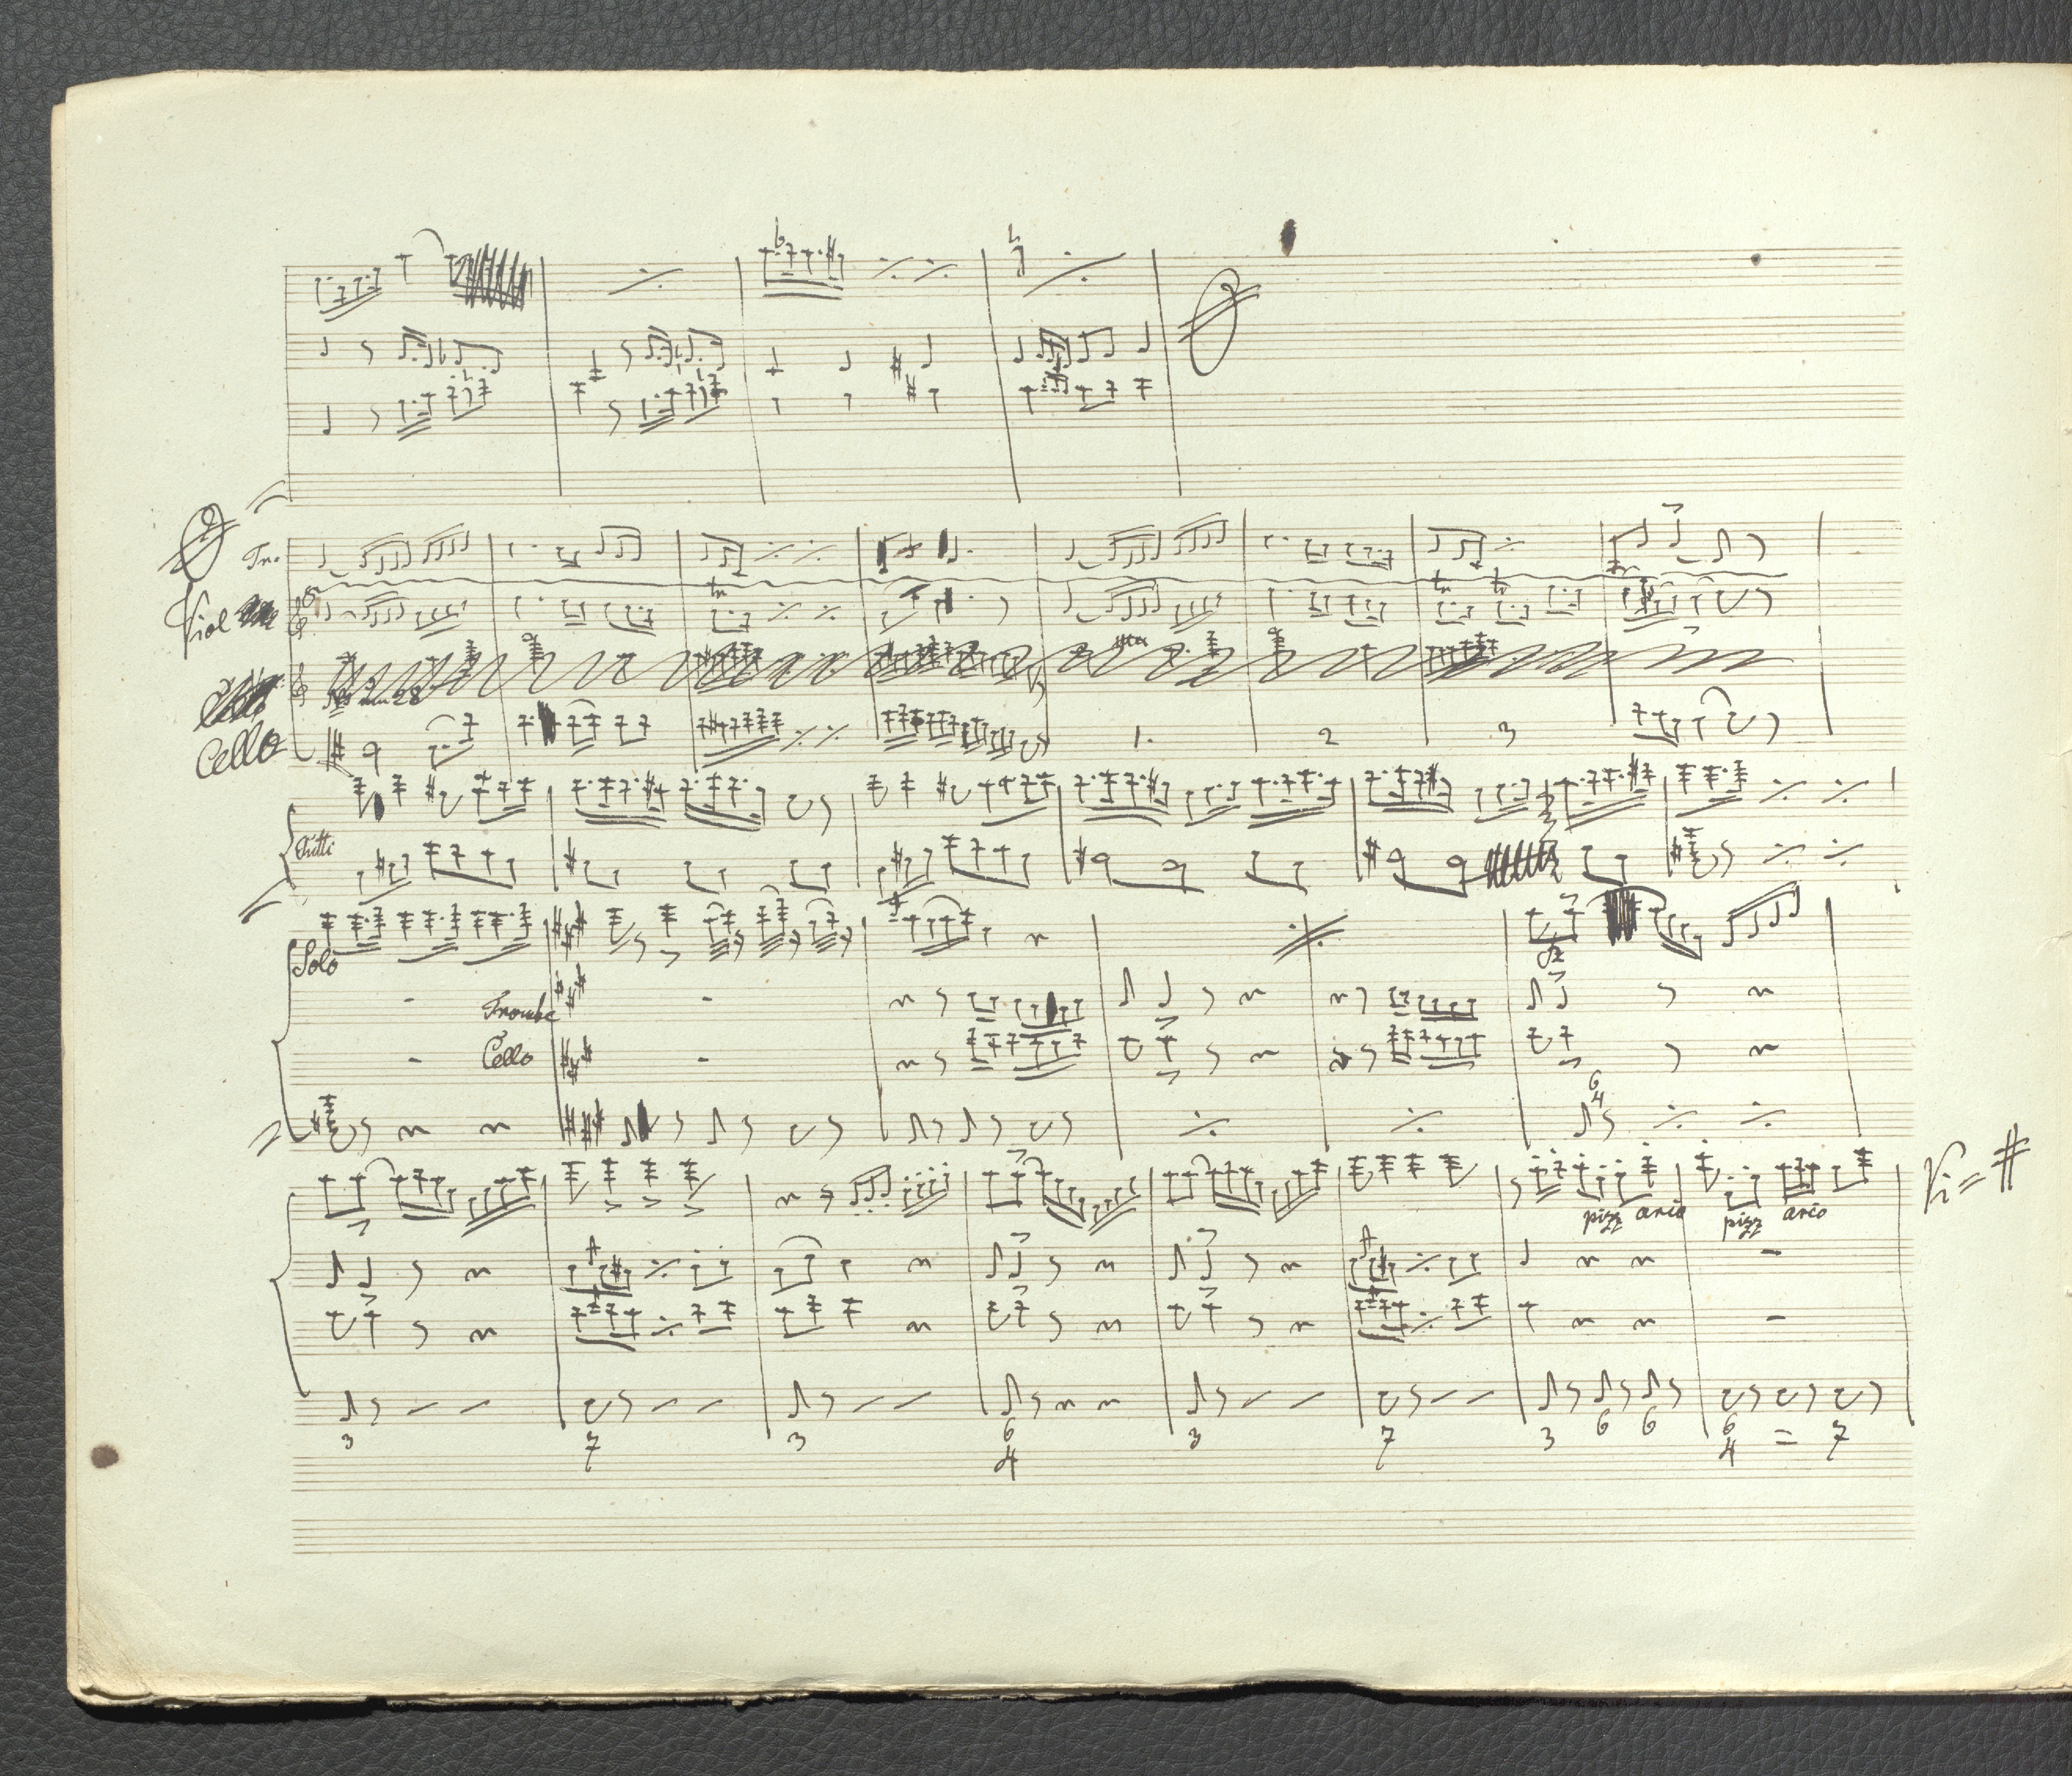 Tr.
Viol
tr tr tr
8
Cello
1. 2 3
Tutti
Solo
Trombe
Cello
6
4
Vi = #
pizz arco pizz arco
3 7 3 6 3 7 3 6 6 6 = 7
4 4